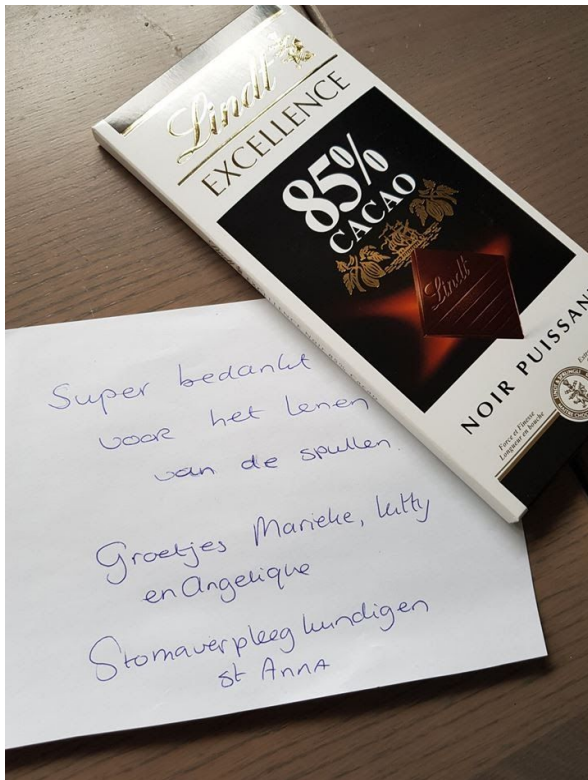 Lindt
EXCELLENCE
85%
CACAO
Lindt
NOIR PUISSAN
Force et Finesse
Longueur en bouche
Super bedankt
voor het lenen
van de spullen.
Groetjes Marieke, kitty
en Angelique
Stomaverpleegkundigen
st Anna